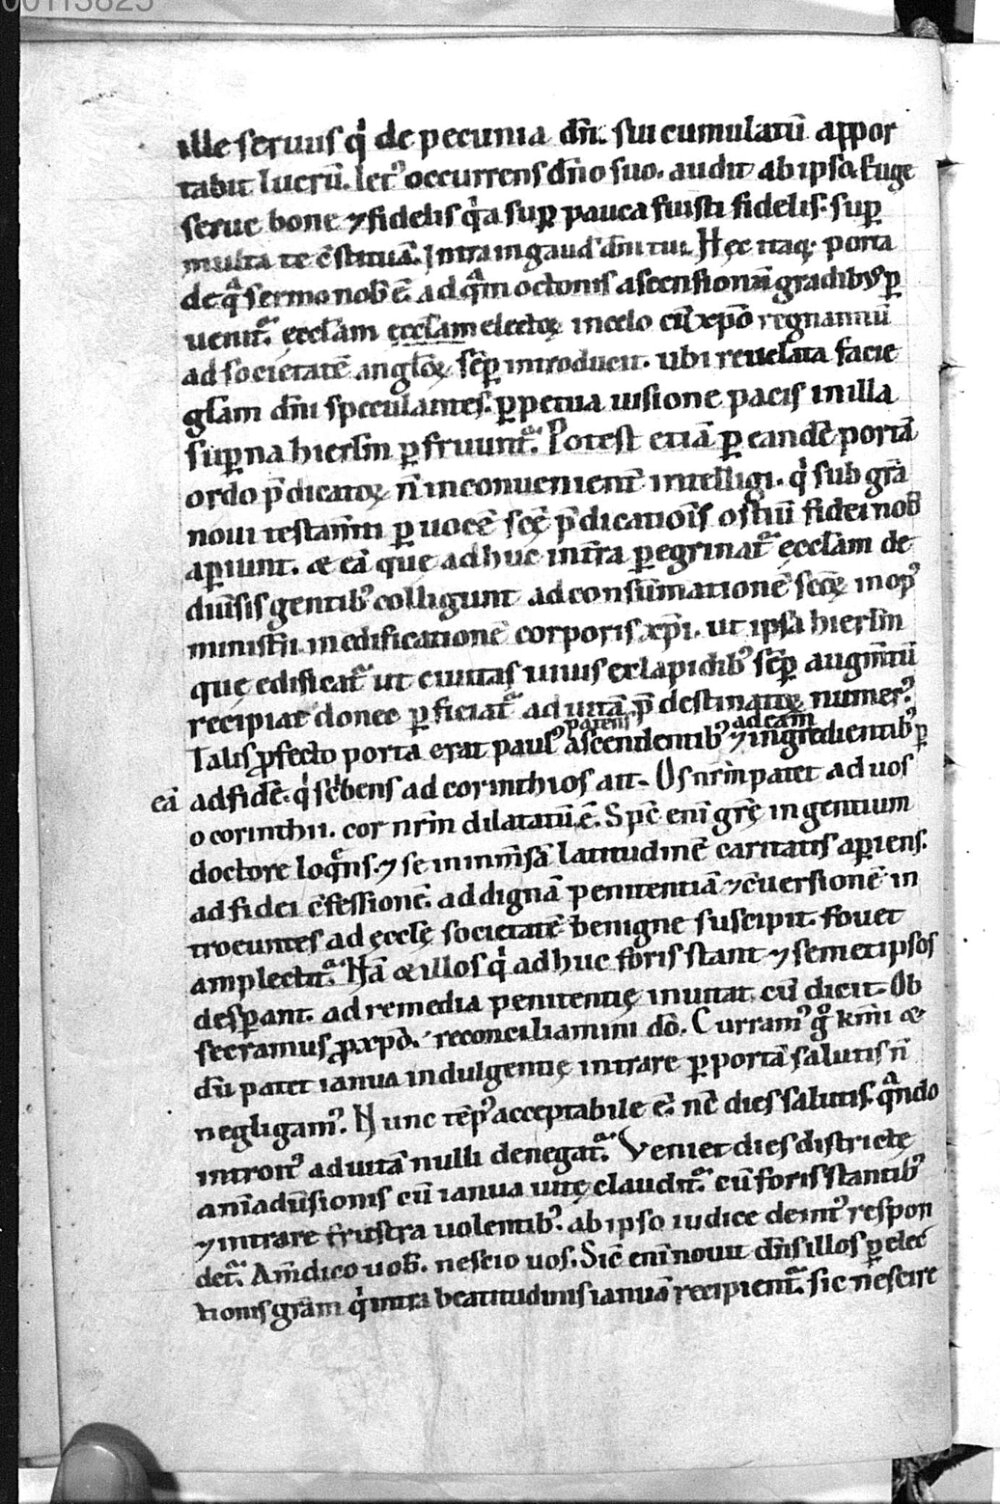 00113825
ille seruus q̇ de pecunia dn̄i sui cumulatū appor
tabit lucrū. letꝰ occurrens dn̄o suo. audit ab ipso. Euge
serue bone ⁊ fidelis qͥa suꝑ pauca fuisti fidelis. suꝑ
multa te ↄ̄stituā. Intra in gaud' dn̄i tui. Hęc itaq; porta
de qͣ sermo nob̄ ē. ad qͣm octonis ascensionū gradibꝰ ꝑ
uenitᷣ. ęccl̄am ęccl̄am electoꝝ in celo cū xp̄o regnantiū
ad societatē angl̄oꝝ sēꝑ introducit. ubi reuelata facie
gl̄am dn̄i speculantes. ꝑpetua uisione pacis in illa
suꝑna hierl̄m ꝑfruuntᷣ. Potest etiā ꝑ eandē portā
ordo p̄dicatoꝝ n̄ inconuenient̄ intelligi. qͥ sub gr̄a
noui testam̄ti ꝑ uocē scę̄ p̄dicatiōis ostiū fidei nob̄
aꝑiunt. & eā que adhuc int̄ra ꝑegrinatᷣ ęccl̄am de
diu̅sis gentibꝰ colligunt ad consūmationē scōꝝ in opꝰ
minist̄ii. in edificationē corporis xp̄i. ut ipsa hierl̄m
quę edificatᷣ ut ciuitas uiuis ex lapidibꝰ sēꝑ augm̄tū
recipiat donec ꝑficiatᷣ ad uitā p̄destinatoꝝ numerꝰ.
patens ad eam
Talis ꝓfecto porta erat paulꝰ ascendentibꝰ ⁊ ingredientibꝰ ꝑ
eā ad fidē. qͥ sc̄bens ad corinthios ait. Os nr̄m patet ad uos
o corinthii. cor nr̄m dilatatū ē. Spc̄ enī grę̄ in gentium
doctore loqͣns. ⁊ se in inm̄sā latitudinē caritatis aꝑiens.
ad fidei ↄ̄fessionē. ad dignā penitentiā ⁊ ↄ̄uersionē in
troeuntes ad ęccl̄ę societatē benigne suscipit. fouet
amplectitᷣ. Nā & illos qͥ adhuc foris stant ⁊ semetipsos
desꝑant. ad remedia penitentię inuitat. cū dicit. Ob
secramus ꝓ xp̄o. reconciliamini dō. Curramꝰ gͦ km̄i &
dū patet ianua indulgentię intrare ꝑ portā salutis n̄
negligamꝰ. Nunc tēpꝰ acceptabile ē. nc̄ dies salutis. qͣndo
introitꝰ ad uitā nulli denegatᷣ. Veniet dies districtę
anīadu̅sionis cū ianua uitę clauditᷣ. cū foris stantibꝰ
⁊ intrare frustra uolentibꝰ. ab ipso iudice de intꝰ respon
detᷣ. Am̄ dico uob̄. nescio uos. Sic̄ enī nouit dn̄s illos ꝑ elec
tionis gr̄am qͥ intra beatitudinis ianuā recipientᷣ. sic nescire